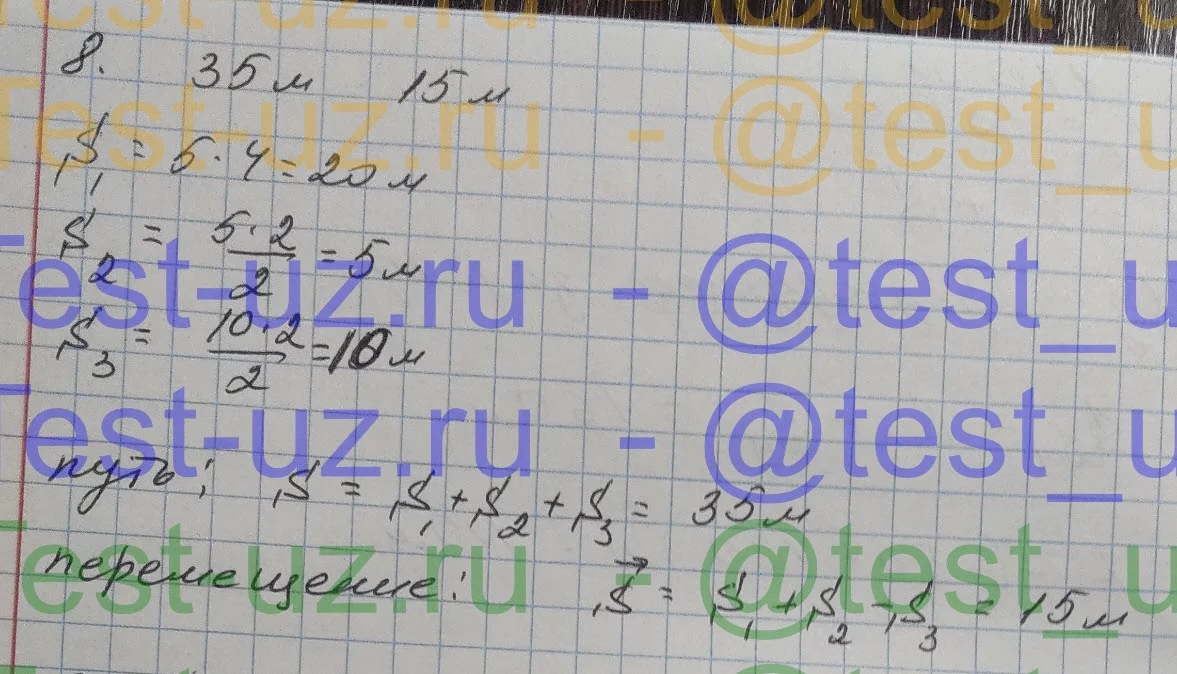 Test-uz.ru - @test_u
8. 35м 15м
Test-uz.ru - @test_u
S₁ = 5·4 = 20м
S₂ = 5·2/2 = 5м
Test-uz.ru - @test_u
S₃ = 10·2/2 = 10м
Test-uz.ru - @test_u
путь: S = S₁ + S₂ + S₃ = 35м
Test-uz.ru - @test_u
перемещение: S⃗ = S₁ + S₂ - S₃ = 15м